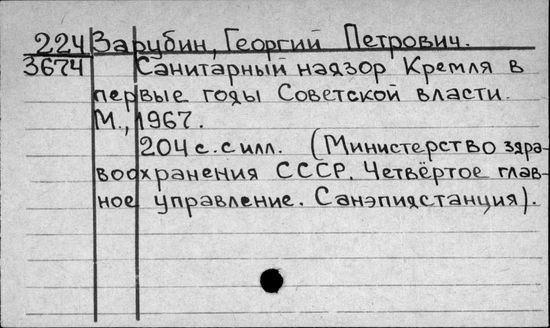 224 Зарубин, Георгий Петрович.
3674 Санитарный надзор Кремля в
первые годы Советской власти.
М., 1967.
204 с. с илл. (Министерство здра-
воохранения СССР. Четвёртое глав-
ное управление. Санэпидстанция).